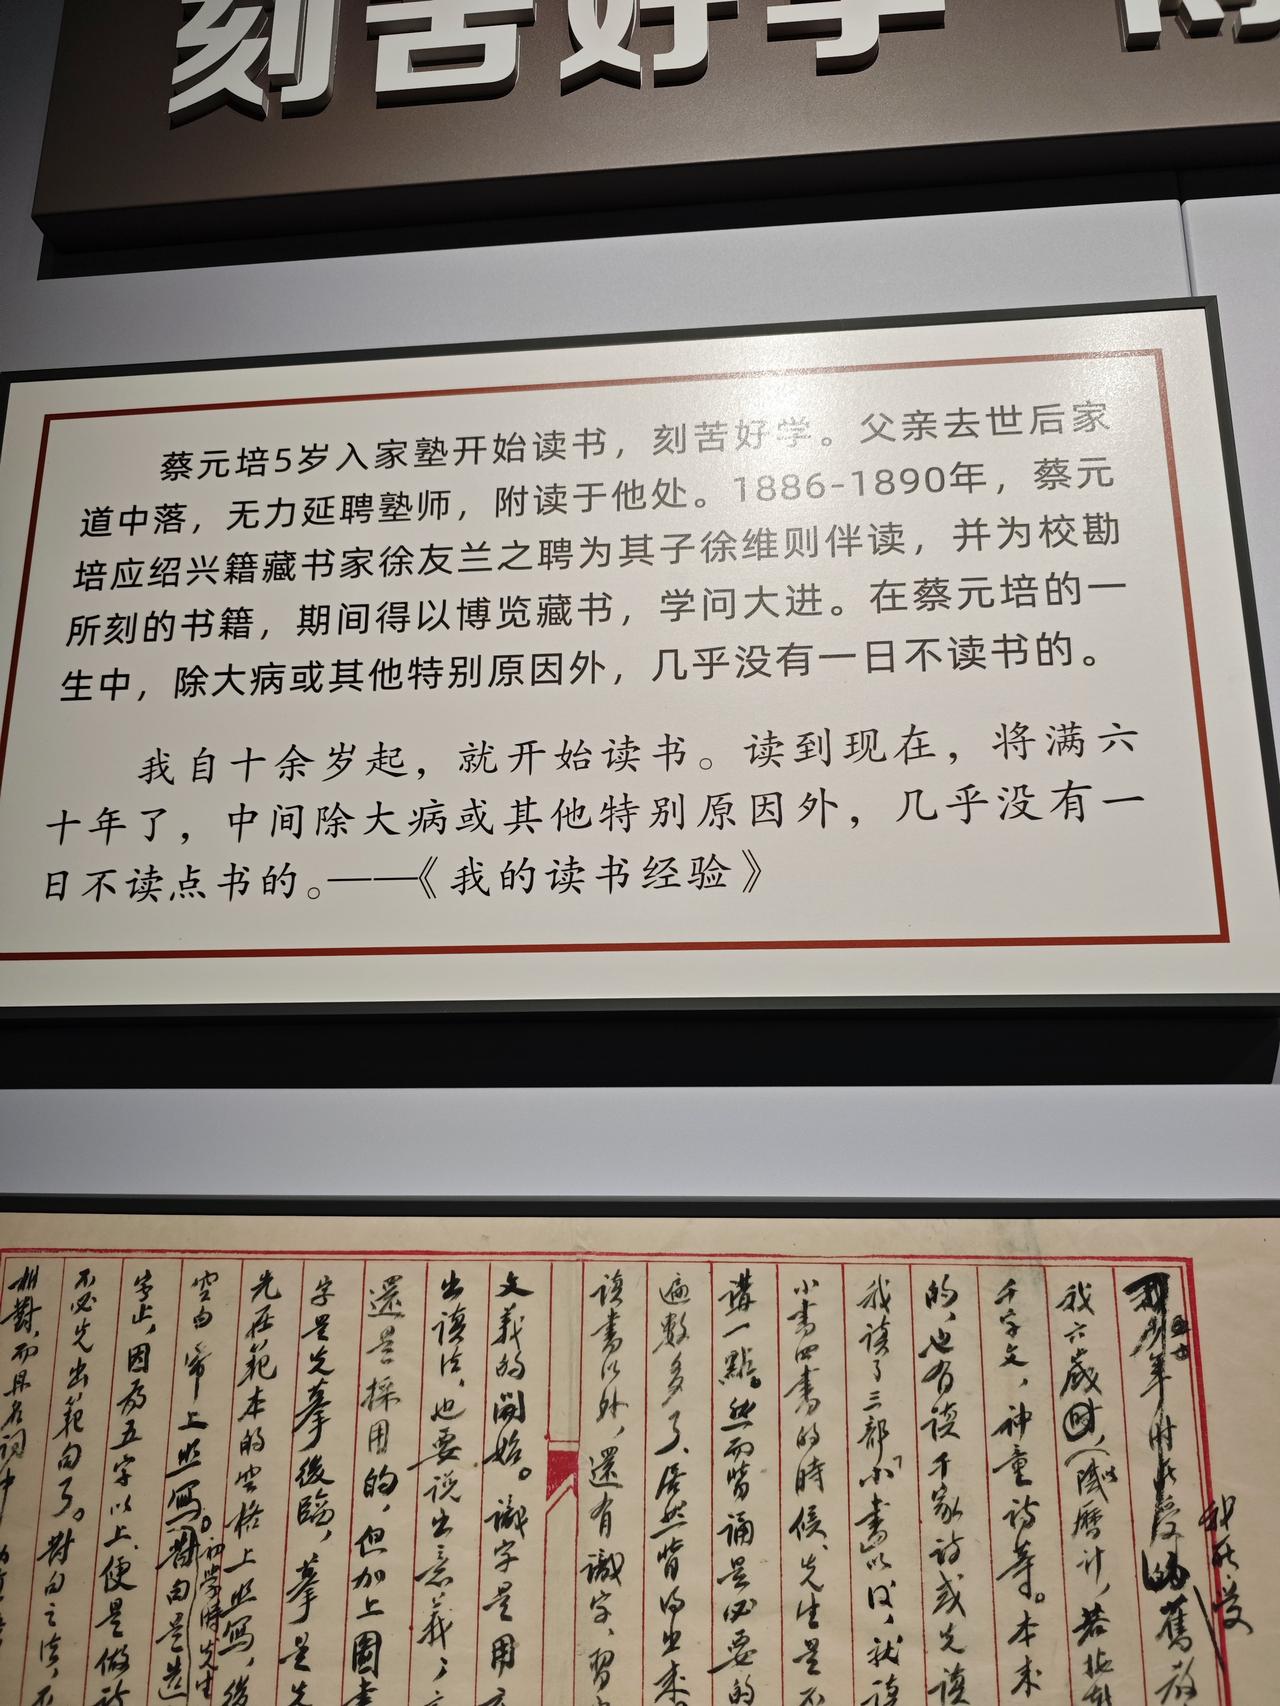 刻苦好学
蔡元培5岁入家塾开始读书，刻苦好学。父亲去世后家
道中落，无力延聘塾师，附读于他处。1886-1890年，蔡元
培应绍兴籍藏书家徐友兰之聘为其子徐维则伴读，并为校勘
所刻的书籍，期间得以博览藏书，学问大进。在蔡元培的一
生中，除大病或其他特别原因外，几乎没有一日不读书的。
我自十余岁起，就开始读书。读到现在，将满六
十年了，中间除大病或其他特别原因外，几乎没有一
日不读点书的。——《我的读书经验》
我所受
的舊教
我六歲時，（以陰曆計，若
千字文，神童詩等。本来
的，也有读千家诗或先读
我读了三部小書以後，就读
小書四書的時候，先生是不
講一點。然而背诵是必要的
遍數多了，居然背得出来。
读書以外，還有識字，習
文義的開始。識字是用
出读法，也要说出意義；
還是採用的，但加上圖
字是先摹後臨，摹是先
先在範本的空格上照寫，後
空白帋上照寫。對句是造
初學時先生
字止，因為五字以上，便是做詩
不必先出範句了。對句之法，不
相對，而且名词